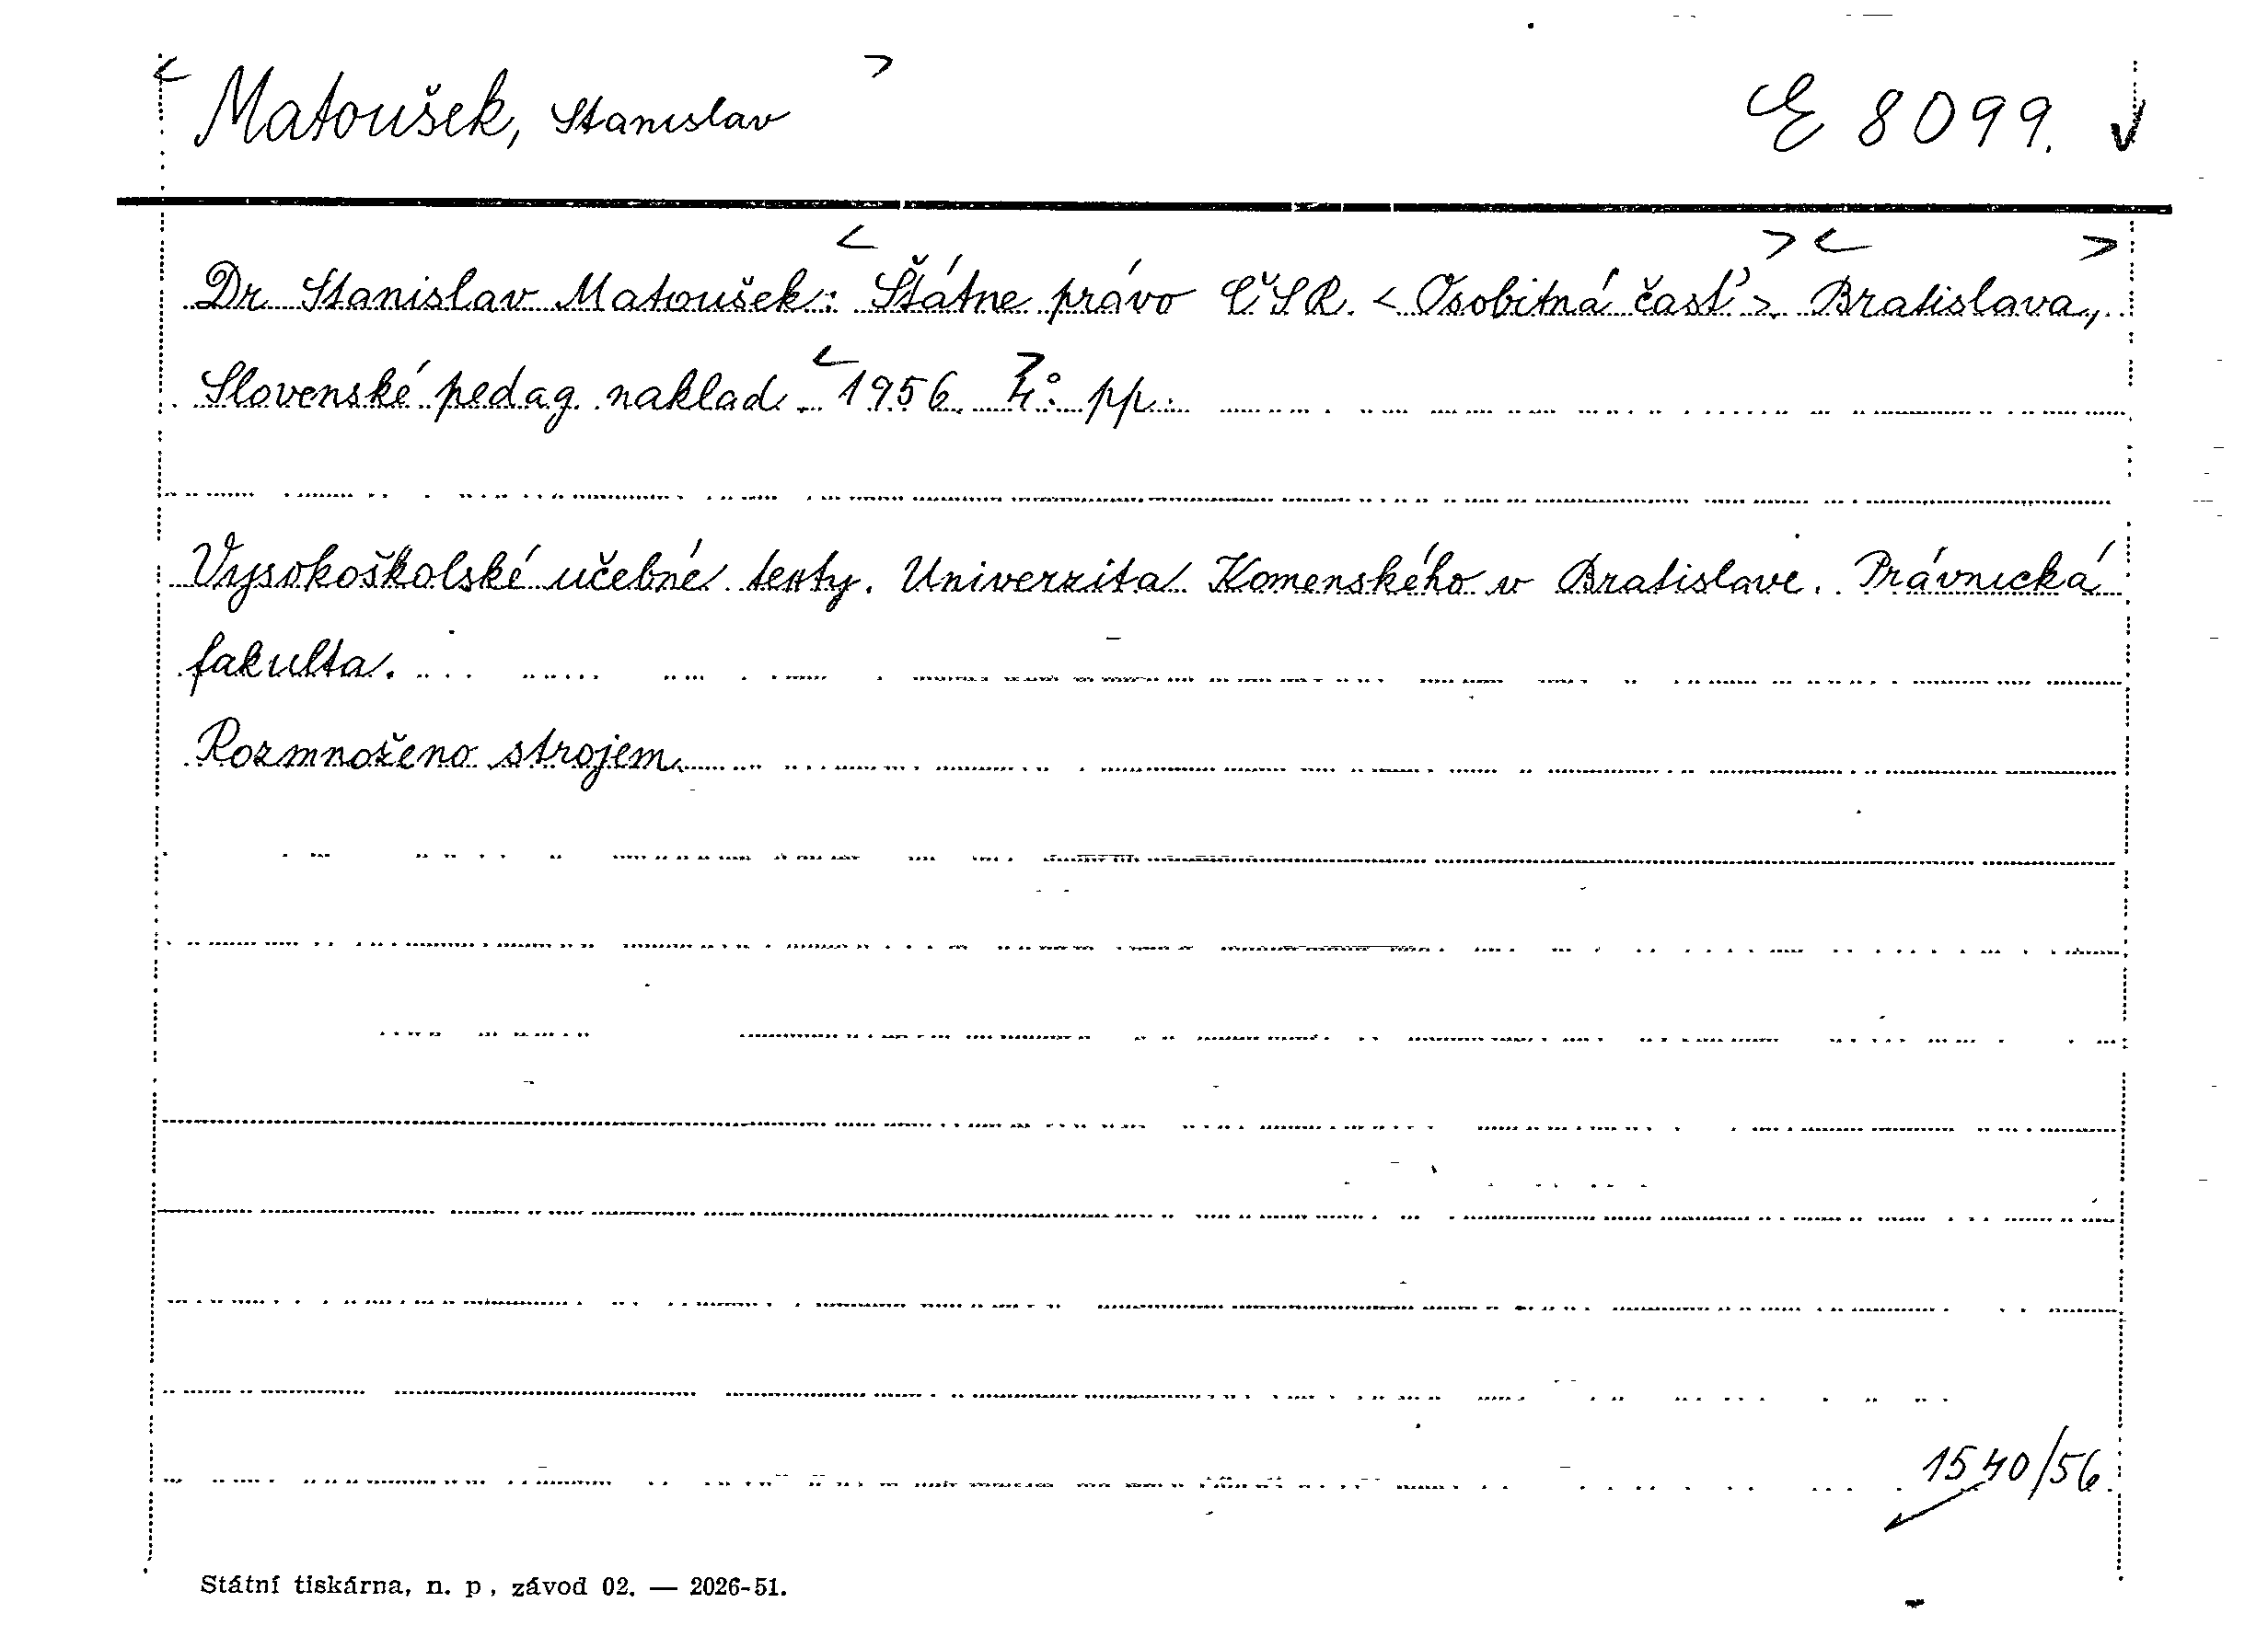 < Matoušek, Stanislav > E 8099.
Dr. Stanislav Matoušek: < Štátne právo ČSR. < Osobitná časť >. > < Bratislava, >
Slovenské pedag. naklad. < 1956. > 4°. pp.
Vysokoškolské učebné texty. Univerzita Komenského v Bratislave. Právnická
fakulta.
Rozmnoženo strojem.
1540/56.
Státní tiskárna, n. p., závod 02. — 2026-51.